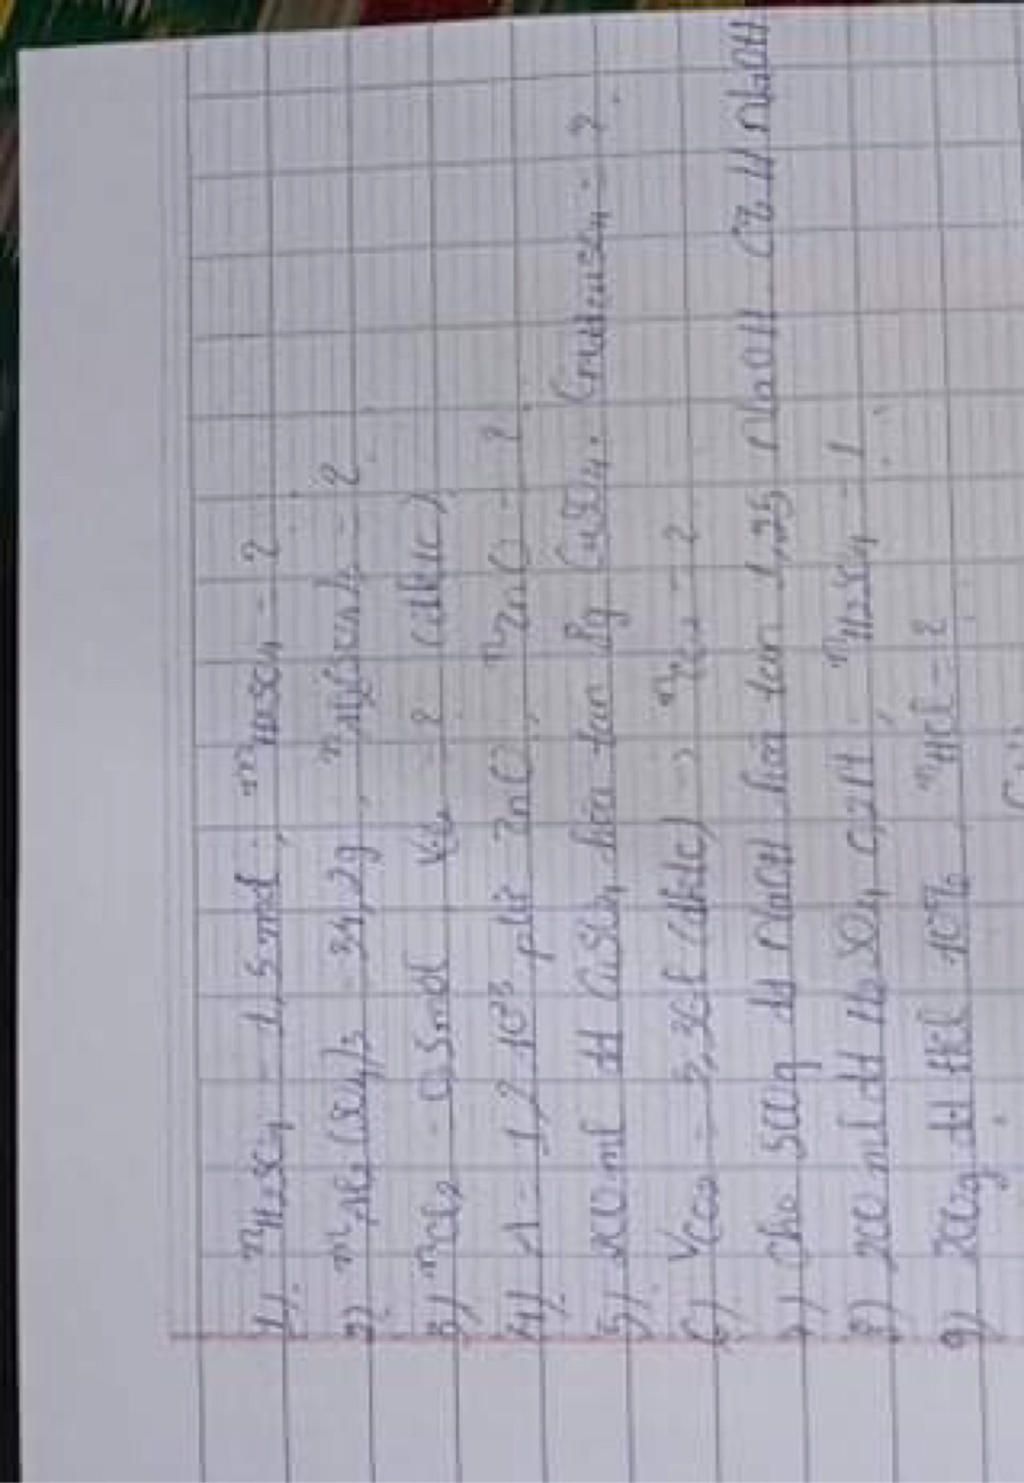 1) nH2SO4 = 1,5 mol, mH2SO4 = ?
2) mAl2(SO4)3 = 34,2g, nAl2(SO4)3 = ?
3) nCl2 = 0,5mol VCl2 = ? (đktc)
4) A = 1,2.10^23 ptử ZnO, nZnO = ?
5) 200ml dd CuSO4 hòa tan 8g CuSO4. CM ddCuSO4 = ?
6) VCO2 = 3,36l (đktc) → nCO2 = ?
7) Cho 500g dd NaOH hòa tan 1,25 NaOH. C% dd NaOH
8) 200 ml dd H2SO4 0,2M. nH2SO4 =
9) 200g dd HCl 10%, nHCl = ?